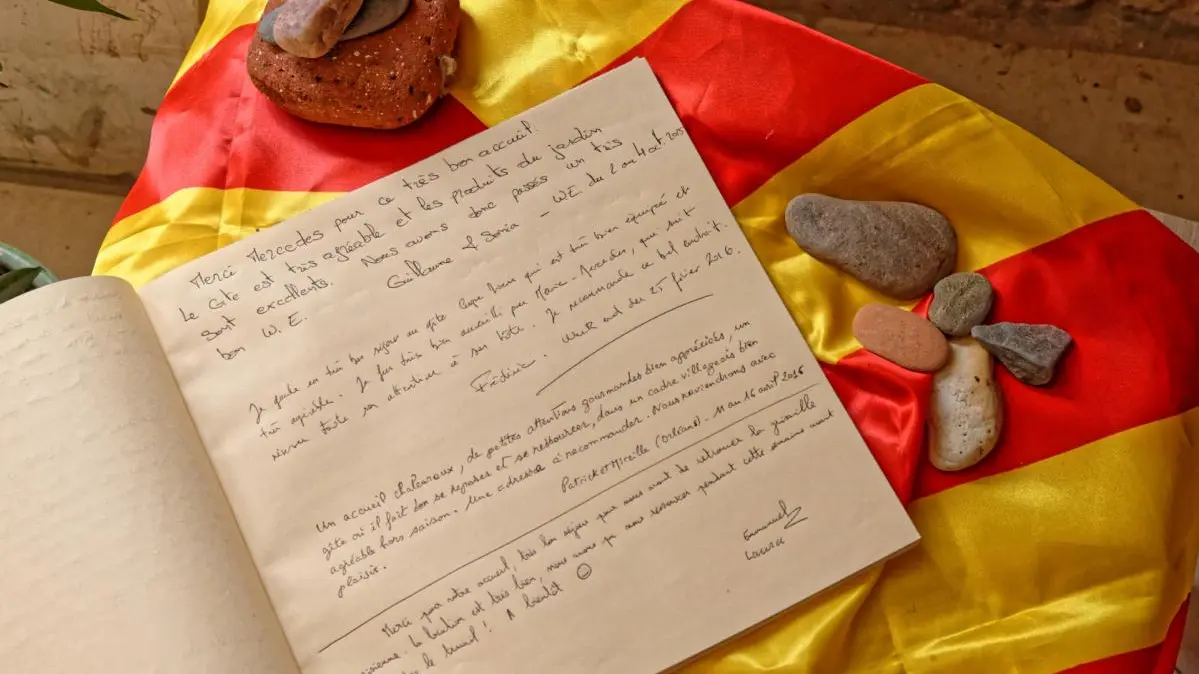 Merci Mercedes pour ce très bon accueil!
Le Gîte est très agréable et les produits du jardin
sont excellents. Nous avons donc passés un très
bon W.E. Guillaume & Sonia - WE du 2 au 4 oct. 2015
Je garde un très bon séjour au gîte qui est très bien équipé et
très agréable. J'ai été très bien accueilli par Marie-Mercedes, que suit
toute son attention à ses hôtes. Je recommande ce bel endroit.
Frédéric. Week end du 25 février 2016.
Un accueil chaleureux, de petites attentions gourmandes bien appréciées, un
gîte où il fait bon se reposer et se ressourcer, dans un cadre villageois bien
agréable hors saison. Une adresse à recommander. Nous reviendrons avec
plaisir. Patrick et Mireille (Orléans). 11 au 16 avril 2016
Merci pour votre accueil, très bon séjour pour nous avant de retrouver la grisaille
La location est très bien, nous avons pu nous ressourcer pendant cette semaine avant
le travail! A bientôt ☺
Emmanuel
Laura